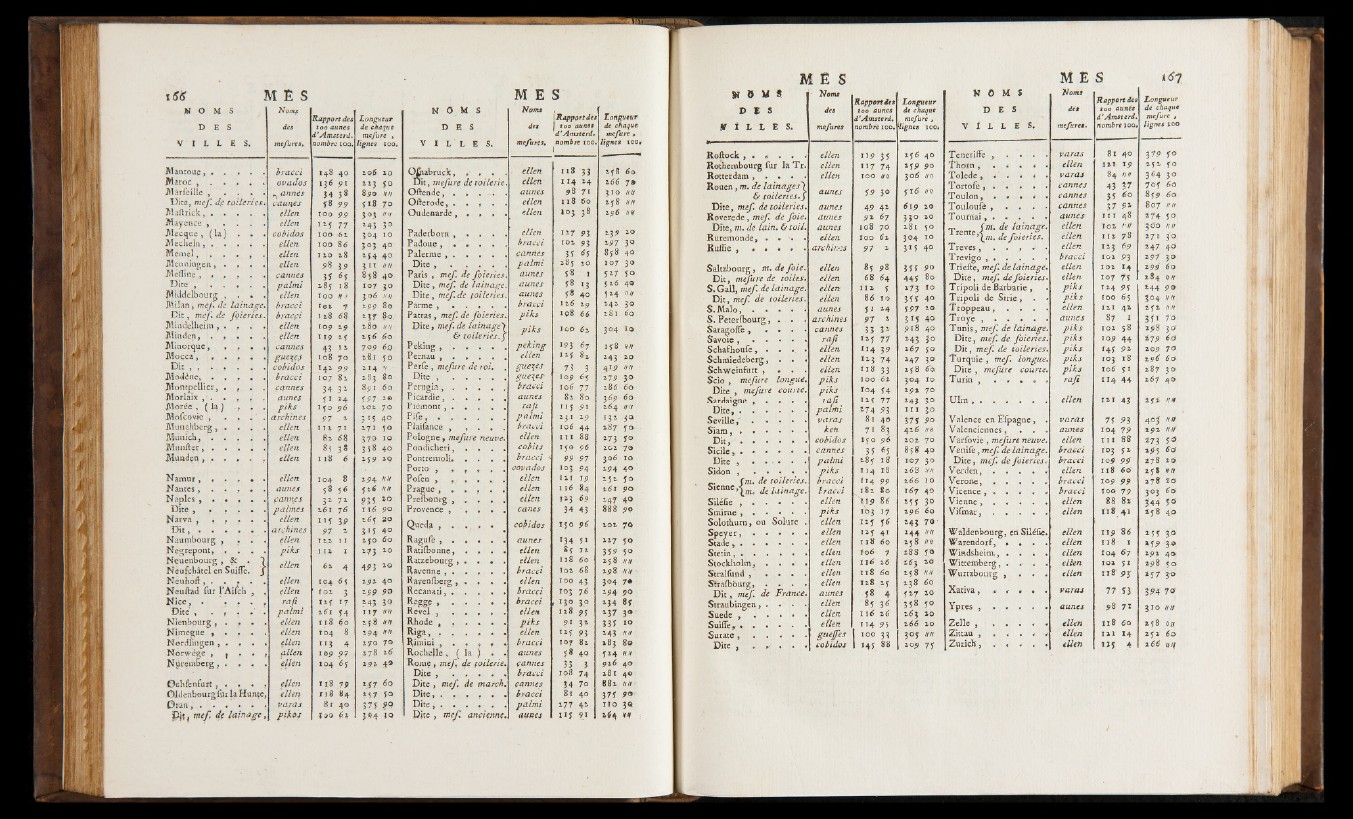 166 MES
NOMS DES VILLES. Noms des mesures. Rapport des 100 aunes d'Amsterd. nombre 100. Longueur de chaque mesure, lignes 100.
Mantoue, bracci 148 40 206 20
Maroc, ovados 136 91 223 50
Marseille, aunes 34 38 890 ″″
Dite, mes. de toileries. caunes 58 99 518 70
Mastrick, ellen 100 99 303 ″″
Mayence, ellen 125 77 243 30
Mecque, (la) cobidos 100 62 304 10
Mecheln, ellen 100 86 303 40
Memel, ellen 120 28 254 40
Menningen, ellen 98 39 311 ″″
Messine, cannes 35 65 858 40
Dite, palmi 285 18 107 30
Middelbourg, ellen 100 ″″ 306 ″″
Milan, mes. de lainage. bracci 102 7 299 80
Dit, mes. de soieries. bracci 128 68 237 80
Mindelheim, ellen 109 29 280 ″″
Minden, ellen 119 25 256 60
Minorque, cannes 43 12 709 60
Mocca, guezes 108 70 281 50
Dit, cobidos 142 99 214 ″
Modène, bracci 107 82 283 80
Montpellier, cannes 34 32 891 60
Morlaix, aunes 51 24 597 20
Morée, (la) piks 150 96 202 70
Moscovie, archines 97 2 315 40
Munchberg, ellen 112 71 271 50
Munich, ellen 82 68 370 10
Munster, ellen 85 38 358 40
Munden, ellen 118 6 259 20
Namur, ellen 104 8 294 ″″
Nantes, aunes 58 56 526 ″″
Naples, cannes 32 72 935 20
Dite, palmes 261 76 116 90
Narva, ellen 115 39 265 20
Dit, archines 97 2 315 40
Naumbourg, ellen 122 11 250 60
Negrepont, piks 112 1 273 20
Neuenbourg, & Neufchâtel en Suisse. ellen 62 4 493 20
Neuhoff, ellen 104 65 292 40
Neustad sur l'Aisch, ellen 102 3 299 90
Nice, rasi 125 17 243 30
Dite, palmi 261 54 117 ″″
Nienbourg, ellen 118 60 258 ″″
Nimegue, ellen 104 8 294 ″″
Nordlingen, ellen 113 4 270 70
Norwége, allen 109 97 278 26
Nuremberg, ellen 104 65 292 40
Ochsenfurt, ellen 118 79 257 60
Oldenbourg sur la Hunte, ellen 118 84 257 50
Oran, varas 81 40 375 90
Dit, mes. de lainage, pikos 100 62 304 10
MES
NOMS DES VILLES. Noms des mesures. Rapport des 100 aunes d'Amsterd. nombre 100. Longueur de chaque mesure, lignes 100.
Osnabruck, ellen 118 33 258 60
Dit, mesure de toilerie. ellen 114 24 266 70
Ostende, aunes 98 71 310 ″″
Osterode, ellen 118 60 258 ″″
Oudenarde, ellen 103 38 296 ″″
Paderborn, ellen 127 93 239 20
Padoue, bracci 102 93 297 30
Palerme, cannes 35 65 858 40
Dite, palmi 285 20 107 30
Paris, mes. de soieries. aunes 58 1 527 50
Dite, mes. de lainage. aunes 58 13 526 40
Dite, mes. de toileries. aunes 58 40 524 ″″
Parme, bracci 126 29 242 30
Patras, mes. de soieries. piks 108 66 281 60
Dite, mes. de lainage & toileries. piks 100 62 304 10
Peking, peking 193 67 158 ″″
Pernau, ellen 125 82 243 20
Perse, mesure de roi. guezes 73 3 419 ″″
Dite, guezes 109 65 279 30
Perugia, bracci 106 77 286 60
Picardie, aunes 82 80 369 60
Piémont, rasi 115 91 264 ″″
Pise, palmi 231 29 132 30
Plaisance, bracci 106 44 287 50
Pologne, mesure neuve. ellen 111 88 273 50
Pondicheri, cobits 150 96 202 70
Pontremoli, bracci 99 97 306 10
Porto, covados 103 94 294 40
Posen, ellen 121 19 252 50
Prague, ellen 116 84 261 90
Presbourg, ellen 123 69 247 40
Provence, canes 34 43 888 90
Queda, cobidos 150 96 202 70
Raguse, aunes 134 51 227 50
Ratisbonne, ellen 85 12 359 50
Ratzebourg, ellen 118 60 258 ″″
Ravenne, bracci 102 68 298 ″″
Ravensberg, ellen 100 43 304 70
Recanati, bracci 103 76 294 90
Regge, bracci 130 30 234 85
Revel, ellen 128 95 237 30
Rhode, piks 91 32 335 10
Riga, ellen 125 93 243 ″″
Rimini, bracci 107 82 283 80
Rochelle, (la) aunes 58 40 524 ″″
Rome, mes. de toilerie. cannes 33 3 926 40
Dite, bracci 108 74 281 40
Dite, mes. de march. cannes 34 70 882 ″″
Dite, bracci 81 40 375 90
Dite, palmi 277 42 110 30
Dite, mes. ancienne. aunes 115 91 264 ″″
MES
NOMS DES VILLES. Noms des mesures Rapport des 100 aunes d'Amsterd. nombre 100. Longueur de chaque mesure, lignes 100.
Rostock, ellen 119 35 256 40
Rothembourg sur la Tr. ellen 117 74 259 90
Rotterdam, ellen 100 ″″ 306 ″″
Rouen, m. de lainages & toileries. aunes 59 30 516 ″″
Dite, mes. de toileries. aunes 49 42 619 20
Roverede, mes. de soie. aunes 92 67 330 20
Dite, m. de lain. & toil. aunes 108 70 281 50
Ruremonde, ellen 100 62 304 10
Russie, archines 97 2 315 40
Saltzbourg, m. de soie. ellen 85 98 355 90
Dit, mesure de toiles. ellen 68 64 445 80
S. Gall, mes. de lainage. ellen 112 5 273 10
Dit, mes. de toileries. ellen 86 10 355 40
S. Malo, aunes 51 24 597 20
S. Petersbourg, archines 97 2 315 40
Saragosse, cannes 33 32 918 40
Savoie, rasi 125 77 243 30
Schafhouse, ellen 114 39 267 50
Schmiedeberg, ellen 123 74 247 30
Schweinfurt, ellen 118 33 258 60
Scio, mesure longue. piks 100 62 304 10
Dite, mesure courte. piks 104 54 292 70
Sardaigne, rasi 125 77 243 30
Dite, palmi 274 93 111 30
Seville, varas 81 40 375 90
Siam, ken 71 83 426 ″″
Dit, cobidos 150 96 202 70
Sicile, cannes 35 65 858 40
Dite, palmi 285 18 107 30
Sidon, piks 114 18 268 ″″
Sienne, m. de toileries. bracci 114 99 266 10
m. de lainage. bracci 182 80 167 40
Silésie, ellen 119 86 255 30
Smirne, piks 103 17 296 60
Solothurn, ou Solure ellen 125 56 243 70
Speyer, ellen 125 41 244 ″″
Stade, ellen 118 60 258 ″″
Stetin, ellen 106 7 288 50
Stockholm, ellen 116 26 263 20
Stralsund, ellen 118 60 258 ″″
Strasbourg, ellen 128 25 238 60
Dit, mes. de France. aunes 58 4 527 20
Straubingen, ellen 85 36 358 50
Suede, ellen 116 26 263 20
Suisse, ellen 114 95 266 20
Surate, guesses 100 33 305 ″″
Dite, cobidos 145 88 209 75
MES 167
NOMS DES VILLES. Noms des mesures. Rapport des 100 aunes d'Amsterd. nombre 100. Longueur de chaque mesure, lignes 100
Teneriffe, varas 81 40 379 50
Thorn, ellen 121 19 252 50
Tolede, varas 84 ″″ 364 30
Tortose, cannes 43 37 705 60
Toulon, cannes 35 60 859 60
Toulouse, cannes 37 92 807 ″″
Tournai, aunes 111 48 274 50
Trente, m. de lainage. ellen 102 ″″ 300 ″″
m. de soieries. ellen 112 78 271 30
Treves, ellen 123 69 247 40
Trevigo, bracci 102 93 297 30
Trieste, mes. de lainage. ellen 102 14 299 60
Dite, mes. de soieries. ellen 107 75 284 ″″
Tripoli de Barbarie, piks 124 95 244 90
Tripoli de Sirie, piks 100 65 304 ″″
Troppeau, ellen 121 42 252 ″″
Troye, aunes 87 1 351 70
Tunis, mes. de lainage. piks 102 58 298 30
Dite, mes. de soieries. piks 109 44 279 60
Dit, mes. de toileries. piks 145 92 209 70
Turquie, mes. longue. piks 103 18 296 60
Dite, mesure courte. piks 106 51 287 30
Turin, rasi 114 44 267 40
Ulm, ellen 121 43 252 ″″
Valence en Espagne, varas 75 93 403 ″″
Valenciennes, aunes 104 79 292 ″″
Varsovie, mesure neuve. ellen 111 88 273 50
Venise, mes. de lainage. bracci 103 52 295 60
Dite, mes. de soieries. bracci 109 99 278 20
Verden, ellen 118 60 258 ″″
Verone, bracci 109 99 278 20
Vicence, bracci 100 79 303 60
Vienne, ellen 88 82 344 50
Vismar, ellen 118 41 258 40
Waldenbourg, en Silésie. ellen 119 86 255 30
Warendorf, ellen 118 1 259 30
Windsheim, ellen 104 67 292 40
Wittemberg, ellen 102 51 298 50
Wurtzbourg, ellen 118 95 257 30
Xativa, varas 77 53 394 70
Ypres, aunes 98 72 310 ″″
Zelle, ellen 118 60 258 ″″
Zittau, ellen 121 14 252 60
Zurich, ellen 115 4 266 ″″